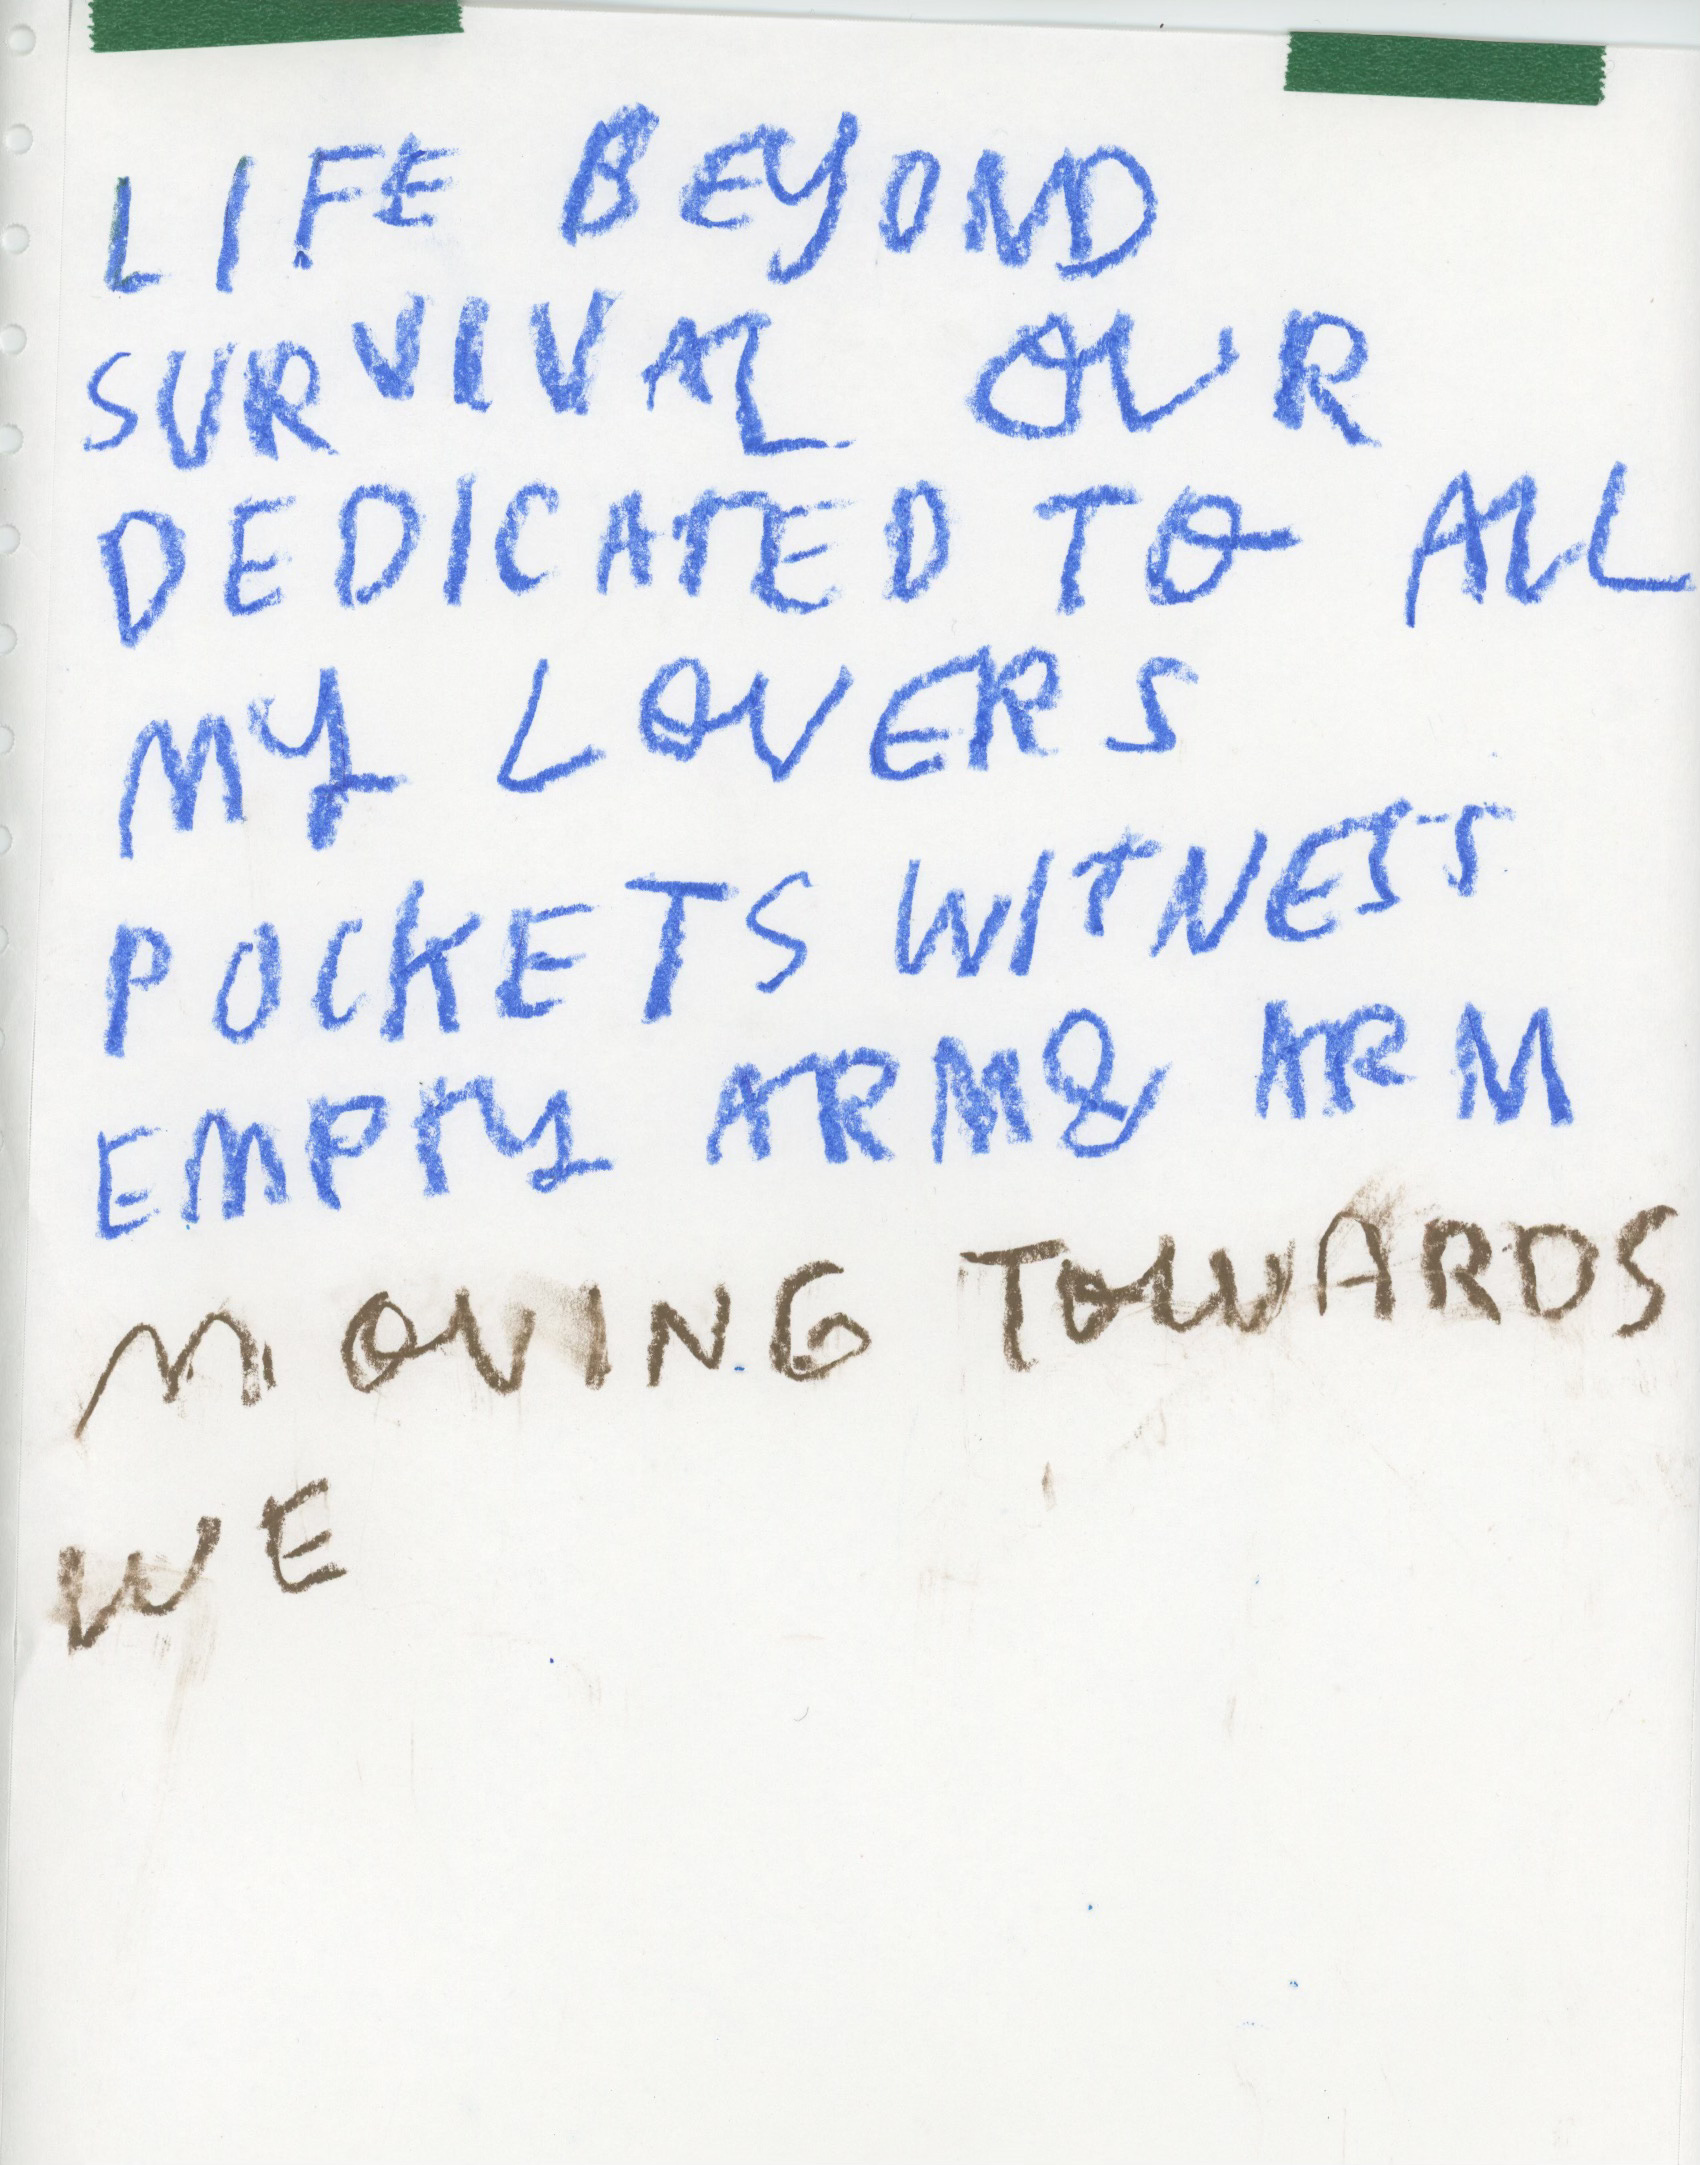 LIFE BEYOND
SURVIVAL OUR
DEDICATED TO ALL
MY LOVERS
POCKETS WITNESS
EMPTY ARM & ARM
MOVING TOWARDS
WE